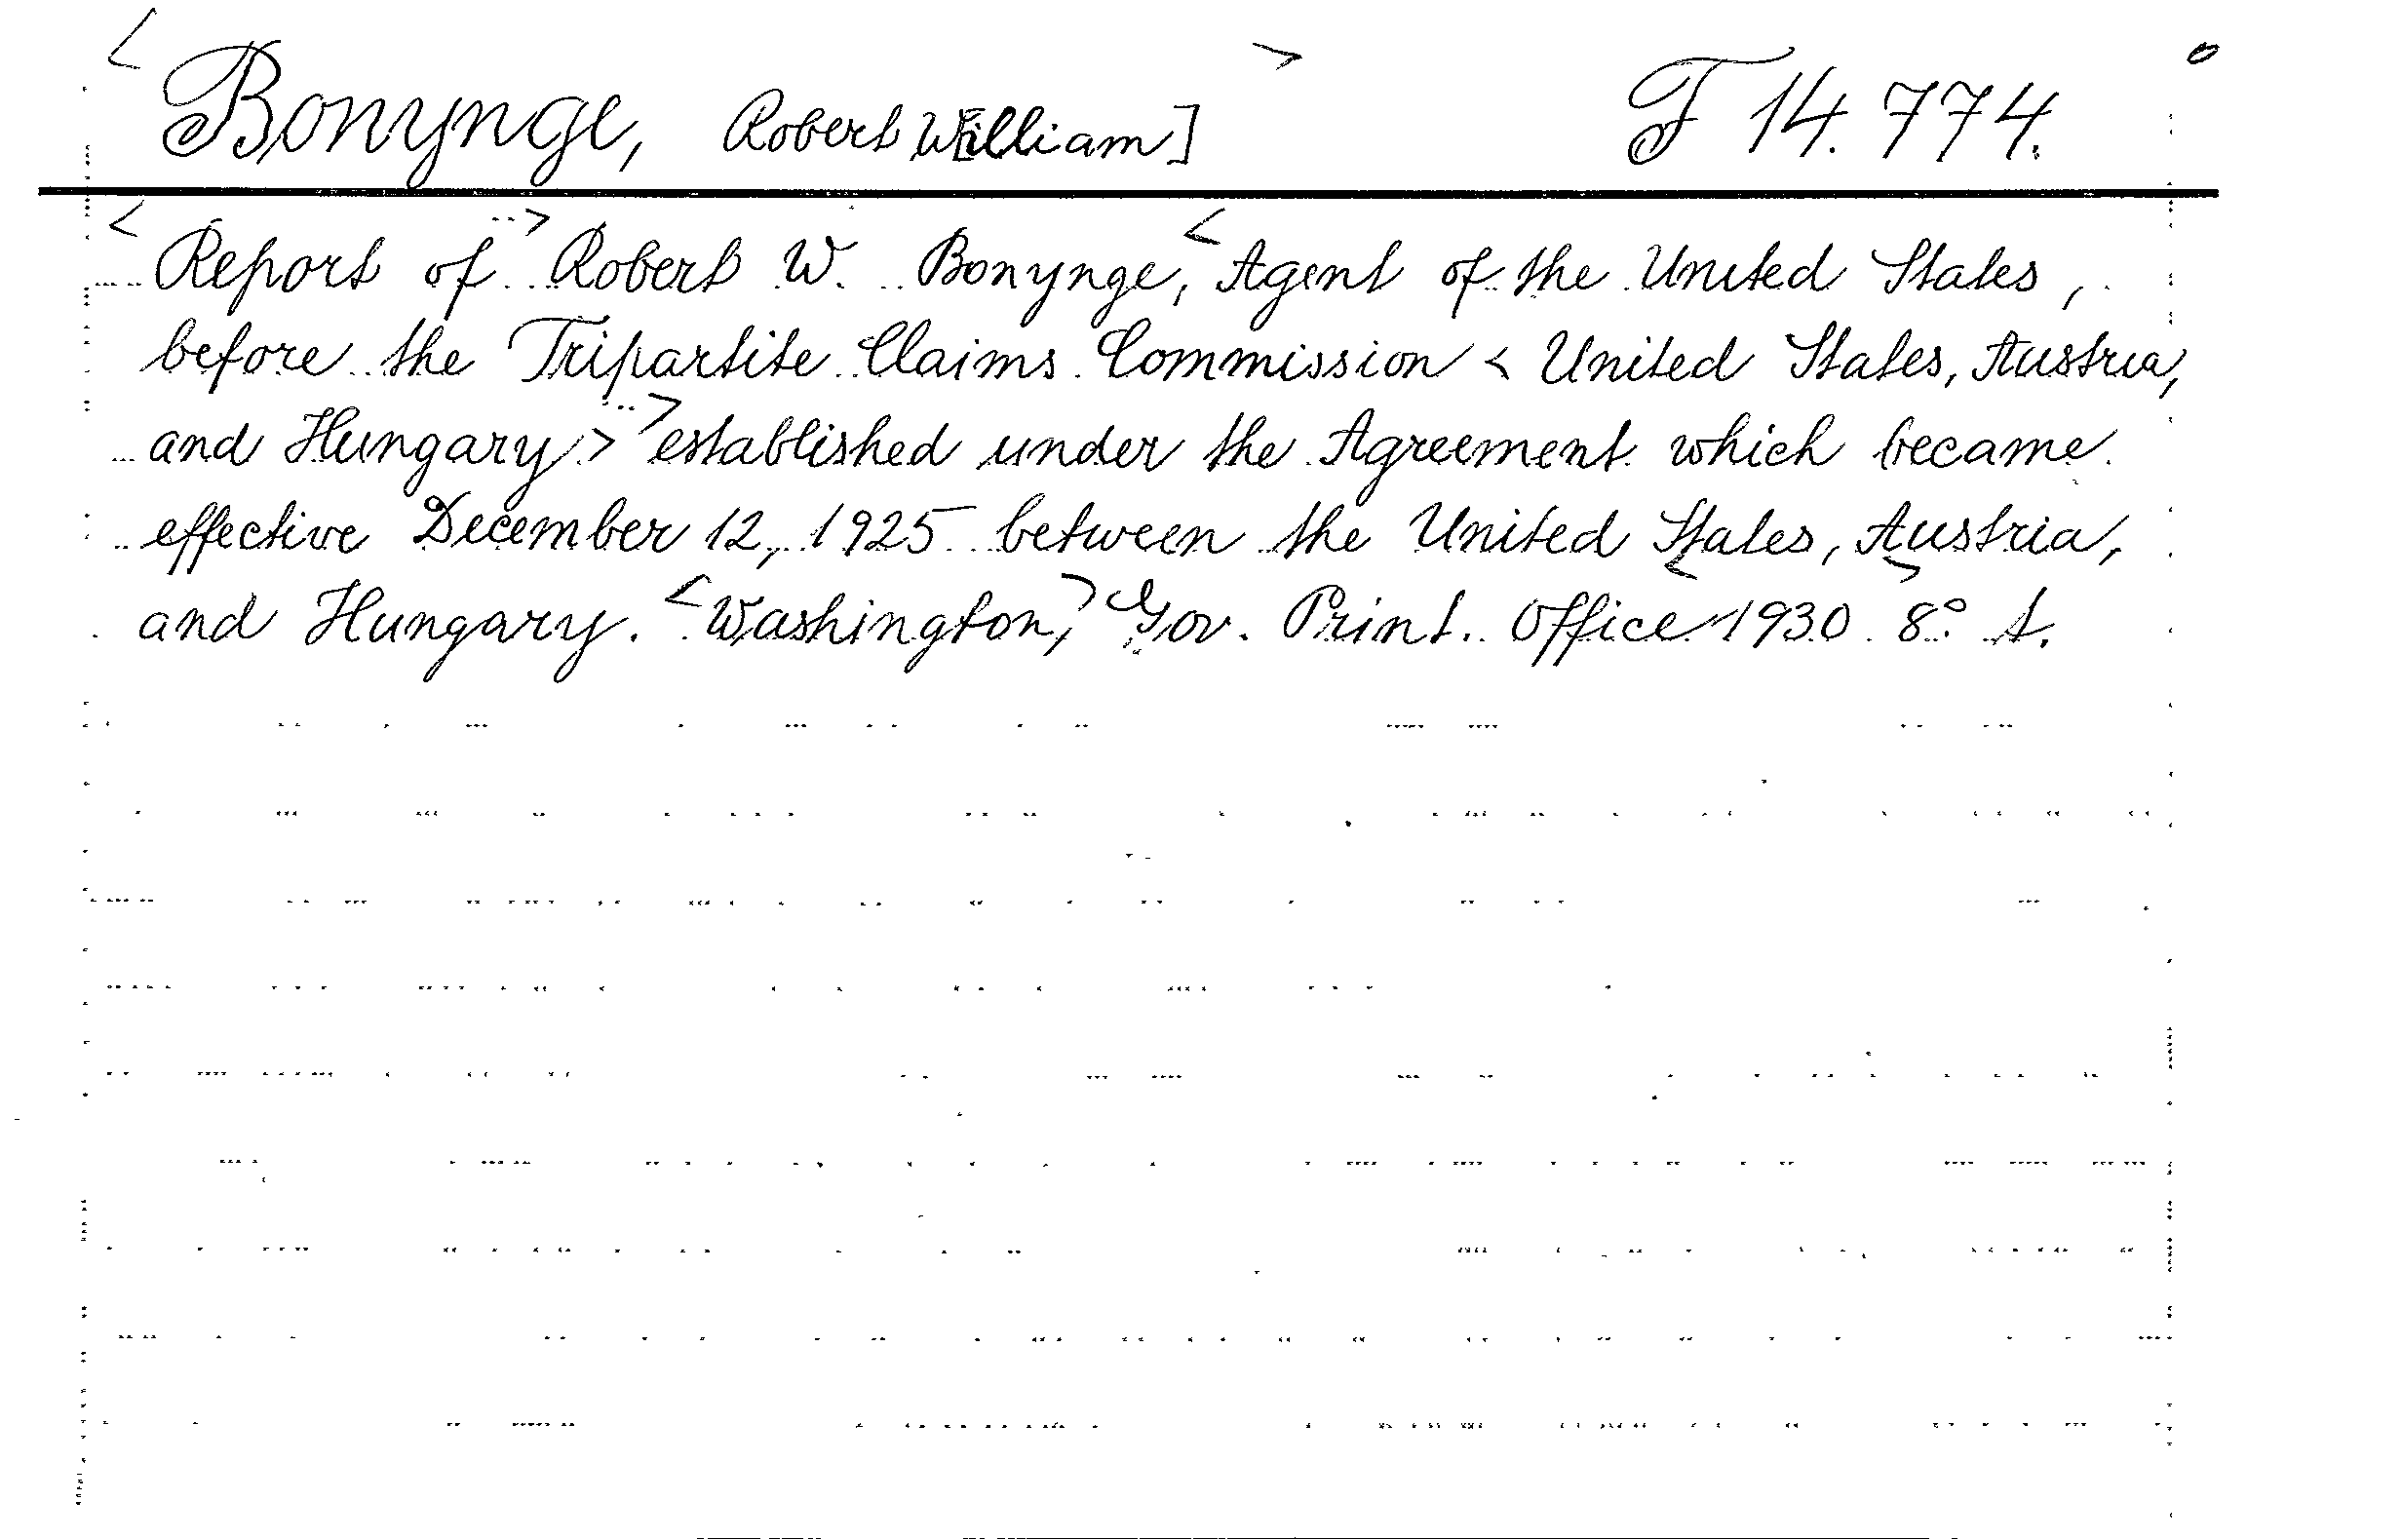 <Bonynge, Robert W[illiam]> F 14.774.
<Report of..> Robert W. Bonynge, <Agent of the United States,
before the Tripartite Claims Commission < United States, Austria,
and Hungary>..> established under the Agreement which became
effective December 12, 1925 between the United States, Austria,
and Hungary. <Washington,> Gov. Print. Office <1930> 8° A.